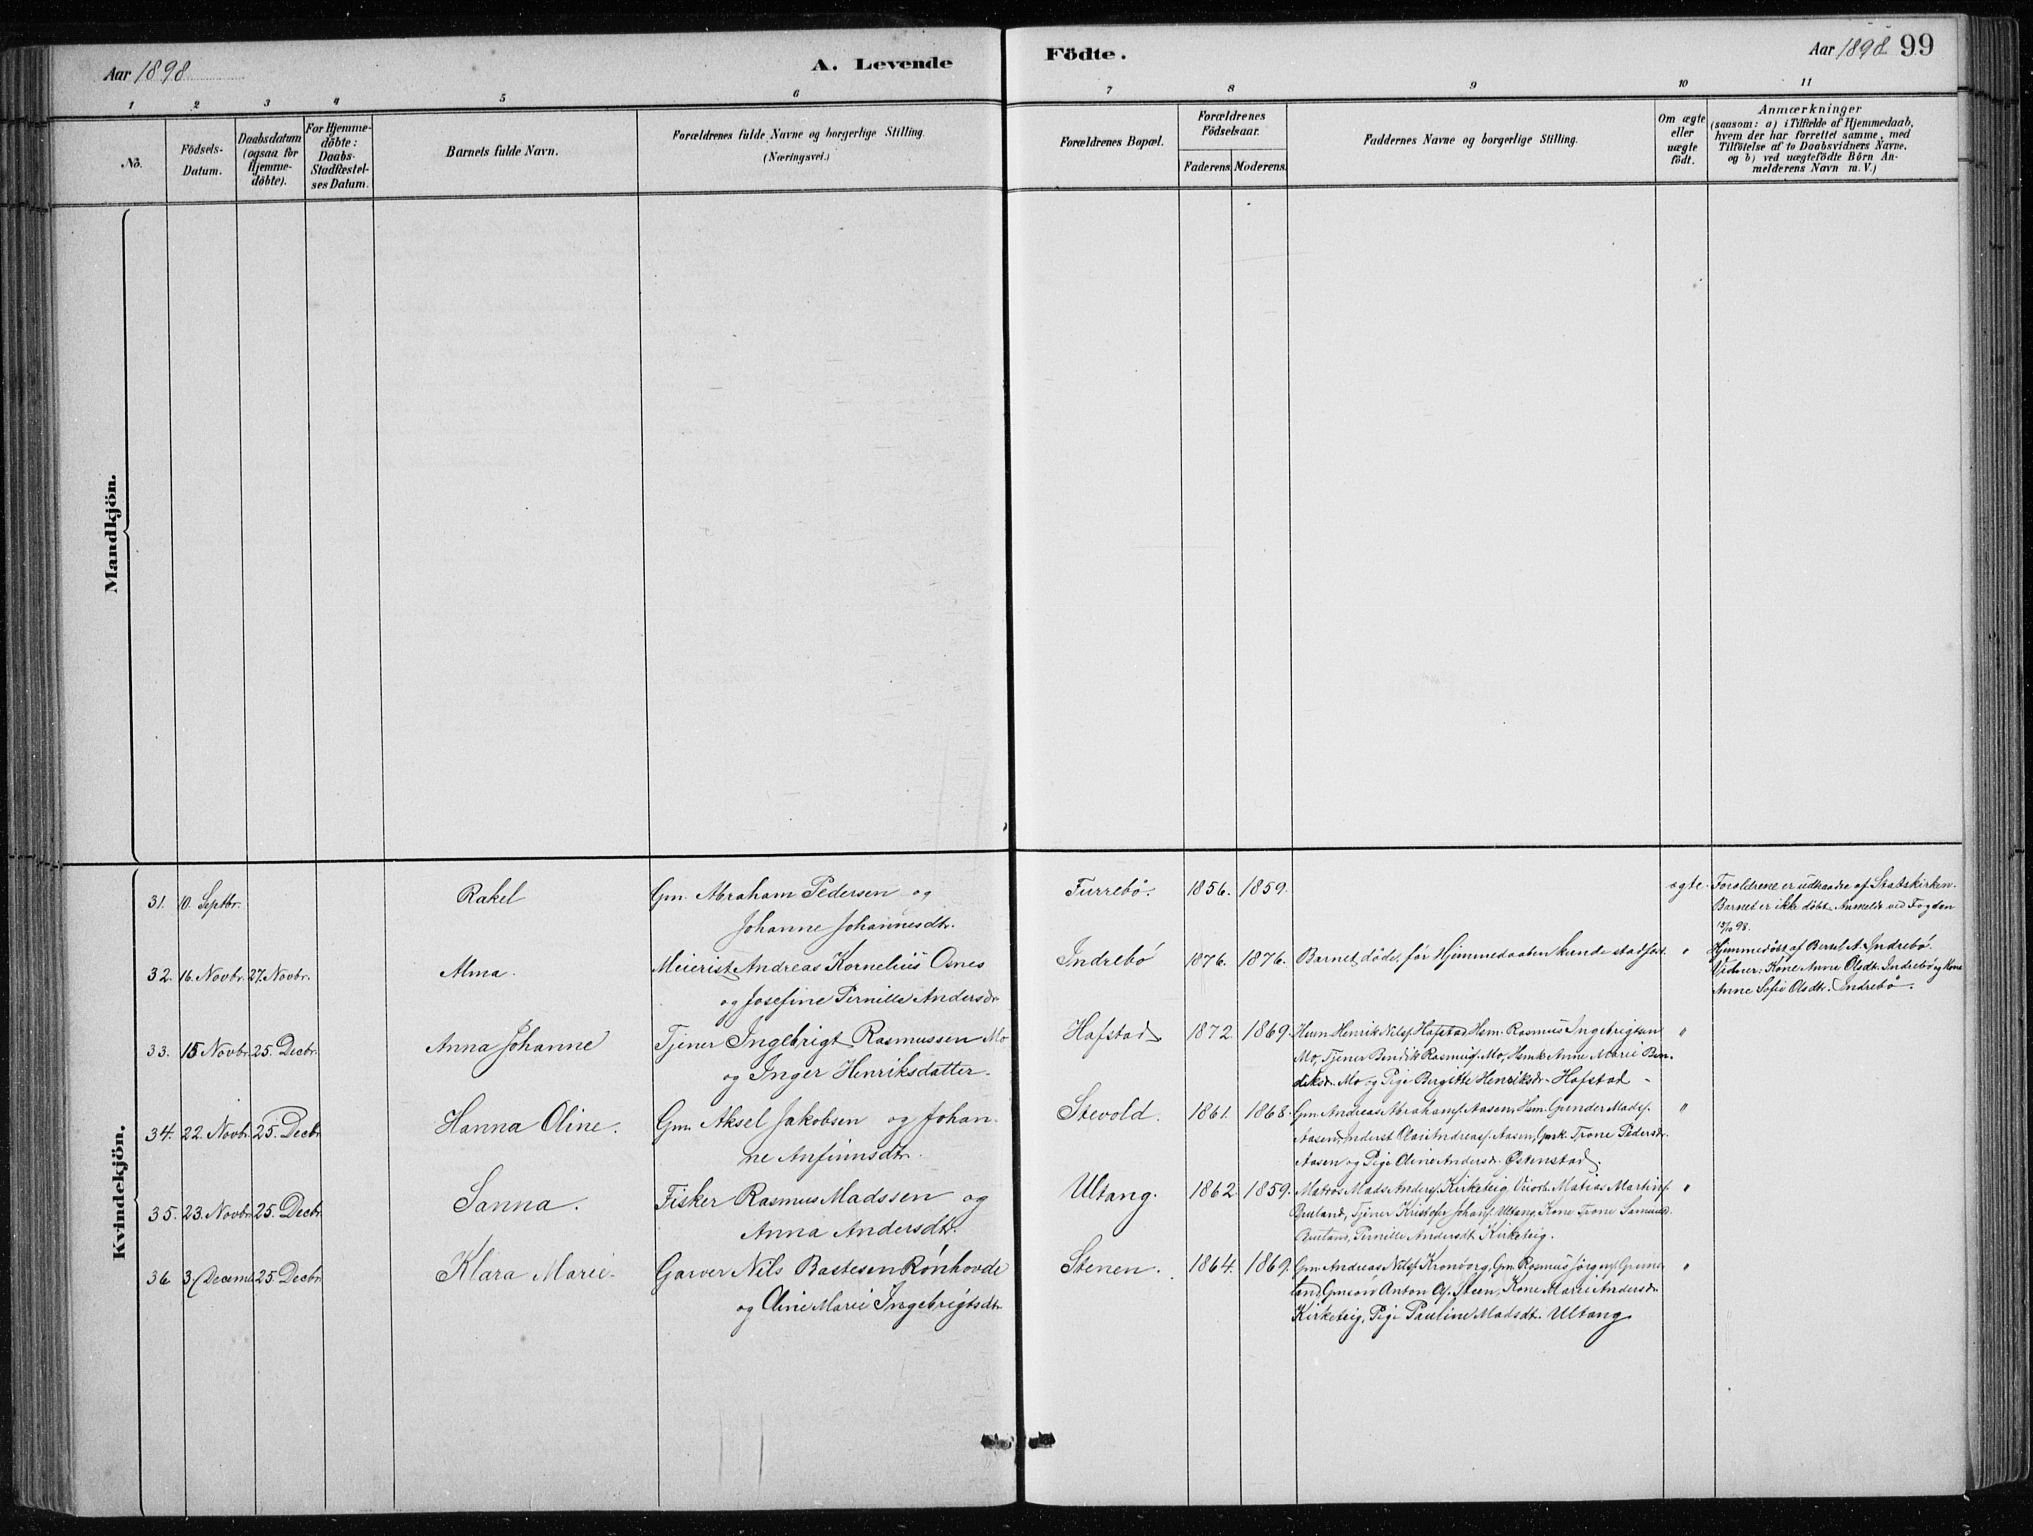 Aar 1898
A. Levende
Födte.
Aar 1898 99
1 2 3 4 5 6 7 8 9 10 11
No.
Födsels-
Datum.
Daabsdatum
(ogsaa for
Hjemme-
döbte).
For Hjemme-
döbte:
Daabs-
Stadfæstel-
ses Datum.
Barnets fulde Navn.
Forældrenes fulde Navne og borgerlige Stilling.
(Næringsvei.)
Forældrenes Bopæl.
Forældrenes
Födselsaar.
Faderens. Moderens.
Faddernes Navne og borgerlige Stilling.
Om ægte
eller
uægte
födt.
Anmærkninger
(saasom: a) i Tilfælde af Hjemmedaab,
hvem der har forrettet samme, med
Tilföielse af to Daabsvidners Navne,
og b) ved uægtefödte Börn An-
melderens Navn m. V.)
Mandkjön.
Kvindekjön.
31. 10. Septbr.
Rakel
Gm. Abraham Pedersen og
Johanne Johannesdtr.
Furrebø. 1856. 1859.
ægte
Foreldrene er udtraadte af Statskirken.
Barnet er ikke döbt. Anmeldt ved Fogden
12/10 98.
32. 16. Novbr. 27. Novbr.
Alma.
Meierist Andreas Kornelius Osnes
og Josefine Pernille Andersdr
Indrebö 1876. 1876.
Barnet döde, før Hjemmedaaben kunde stadfæst. "
Hjemmedöbt af Bertel A. Indrebö.
Vidner: Kone Anne Olsdt. Indrebö og Kone
Anne Sofie Olsdtr. Indrebö.
33. 15 Novbr. 25. Decbr.
Anna Johanne
Tjener Ingebrigt Rasmussen Mo
og Inger Henriksdatter.
Hafstad 1872. 1869.
Husm Henrik Nilss. Hafstad, Hsm. Rasmus Ingebrigtsen
Mo, Tjener Bendik Rasmuss. Mo, Hsmk Anne Marie Ben-
diksdr. Mo og Pige Bergitte Henriksdr. Hafstad "
34. 22. Novbr. 25. Decbr.
Hanna Oline.
Gm. Aksel Jakobsen og Johan-
ne Anfinnsdtr.
Stevold. 1861. 1868.
Gm. Andreas Abrahams. Aasen, Hsm. Gunder Mads.
Aasen, Inderst Olai Andreass. Aasen, Gmk. Trone Pedersdr.
Aasen og Pige Oline Andersdr. Østenstad. "
35. 23. Novbr. 25. Decbr.
Sanna.
Fisker Rasmus Madssen og
Anna Andersdtr.
Ultang. 1862. 1859.
Matros Mads Anders. Kirketeig, Matias Martins.
Tjener Kristofer Johans. Ultang, Kone Trone Samuelsd.
Pernille Andersdt. Kirketeig. "
36. 3. Decemb. 25. Decbr.
Klara Marie.
Garver Nils Bastesen Rönhovde
og Oline Marie Ingebrigtsdtr.
Stenen. 1864. 1869.
Gm. Andreas Nilss. Kronborg, Gm. Rasmus Jörgens. Grime-
land, Gmsön Anton Ols. Steen, Kone Marie Andersdr.
Kirketeig, Pige Pauline Madsdt. Ultang "